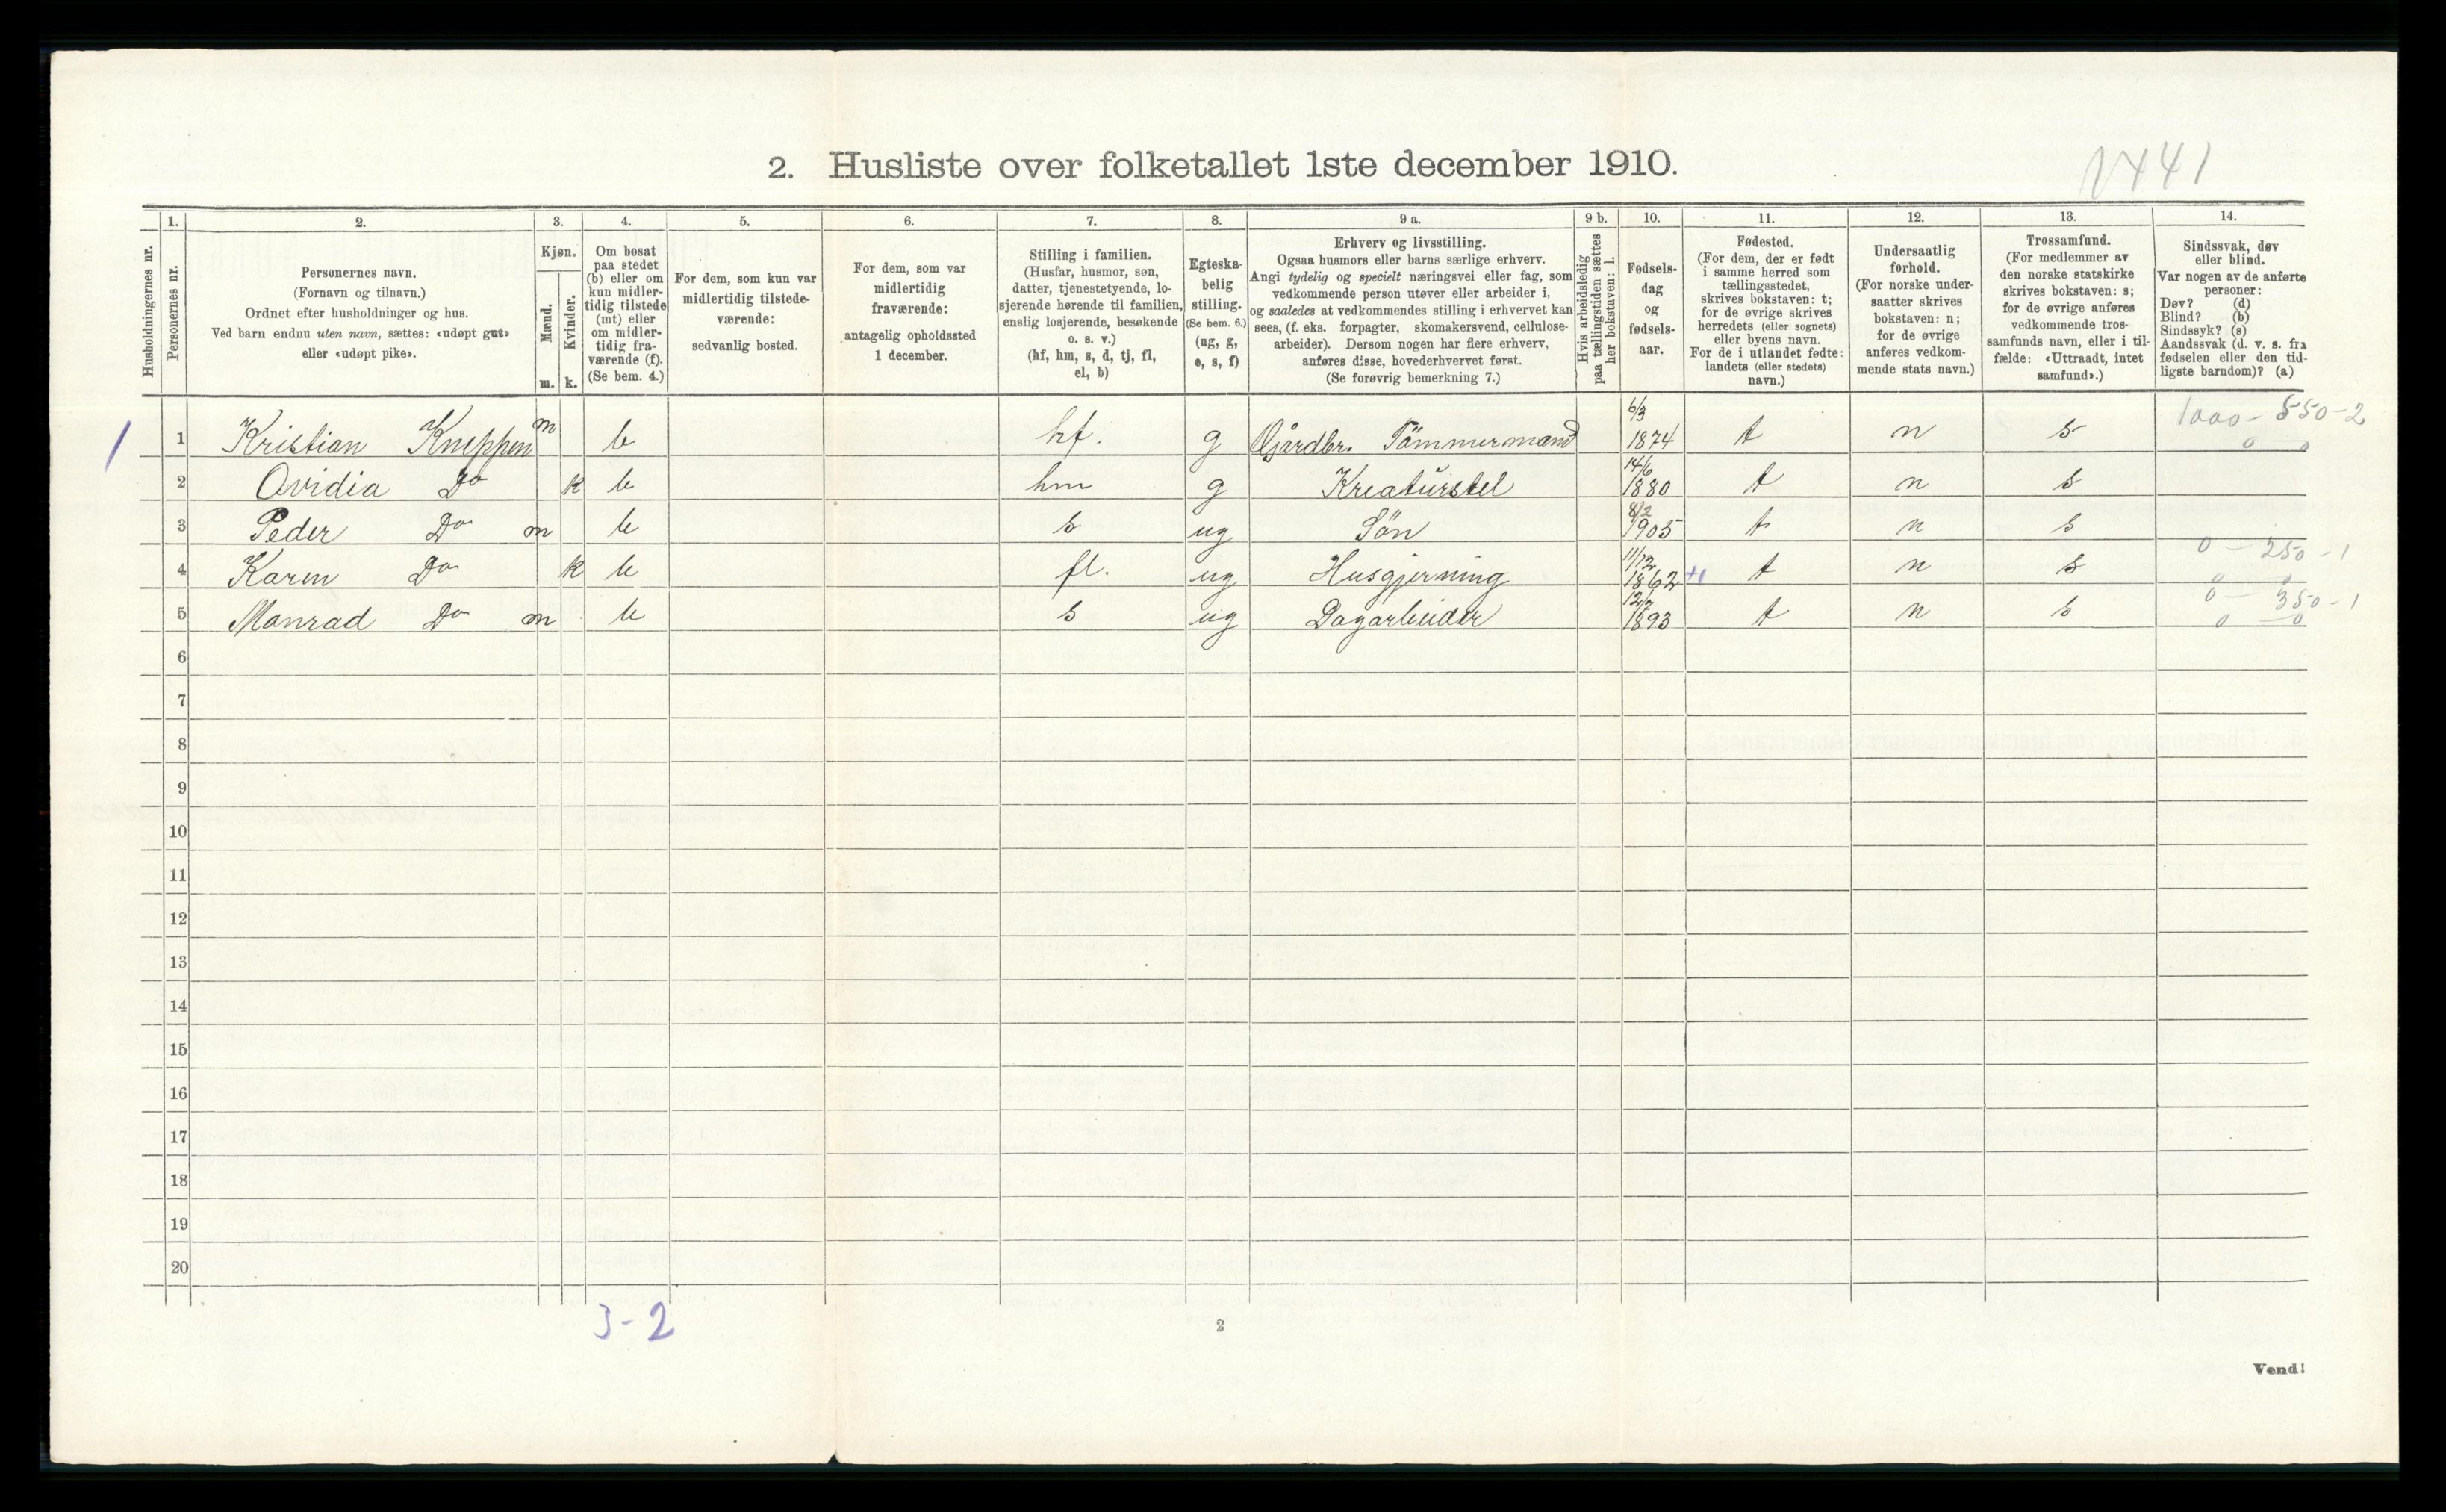 2. Husliste over folketallet 1ste december 1910.
Husholdningernes nr.
1.
Personernes nr.
2.
Personernes navn.
(Fornavn og tilnavn.)
Ordnet efter husholdninger og hus.
Ved barn endnu uten navn, sættes: «udøpt gut»
eller «udøpt pike».
3.
Kjøn.
Mænd.
Kvinder.
m. k.
4.
Om bosat
paa stedet
(b) eller om
kun midler-
tidig tilstede
(mt) eller
om midler-
tidig fra-
værende (f).
(Se bem. 4.)
5.
For dem, som kun var
midlertidig tilstede-
værende:
sedvanlig bosted.
6.
For dem, som var
midlertidig
fraværende:
antagelig opholdssted
1 december.
7.
Stilling i familien.
(Husfar, husmor, søn,
datter, tjenestetyende, lo-
sjerende hørende til familien,
enslig losjerende, besøkende
o. s. v.)
(hf, hm, s, d, tj, fl,
el, b)
8.
Egteska-
belig
stilling.
(Se bem. 6.)
(ug, g,
e, s, f)
9 a.
Erhverv og livsstilling.
Ogsaa husmors eller barns særlige erhverv.
Angi tydelig og specielt næringsvei eller fag, som
vedkommende person utøver eller arbeider i,
og saaledes at vedkommendes stilling i erhvervet kan
sees, (f. eks. forpagter, skomakersvend, cellulose-
arbeider). Dersom nogen har flere erhverv,
anføres disse, hovederhvervet først.
(Se forøvrig bemerkning 7.)
9 b.
Hvis arbeidsledig
paa tællingstiden sættes
her bokstaven: l.
10.
Fødsels-
dag
og
fødsels-
aar.
11.
Fødested.
(For dem, der er født
i samme herred som
tællingsstedet,
skrives bokstaven: t;
for de øvrige skrives
herredets (eller sognets)
eller byens navn.
For de i utlandet fødte:
landets (eller stedets)
navn.)
12.
Undersaatlig
forhold.
(For norske under-
saatter skrives
bokstaven: n;
for de øvrige
anføres vedkom-
mende stats navn.)
13.
Trossamfund.
(For medlemmer av
den norske statskirke
skrives bokstaven: s;
for de øvrige anføres
vedkommende tros-
samfunds navn, eller i til-
fælde: «Uttraadt, intet
samfund».)
14.
Sindssvak, døv
eller blind.
Var nogen av de anførte
personer:
Døv? (d)
Blind? (b)
Sindssyk? (s)
Aandssvak (d. v. s. fra
fødselen eller den tid-
ligste barndom)? (a)
1 1 Kristian Kneppen m b hf. g Gårdbr. Tömmermand 6/3 1874 t n s 1000-550-2 0 0
2 Ovidia Do k b hm g Kreaturstel 14/6 1880 t n s
3 Peder Do m b s ug Sön 8/2 1905 t n s
4 Karen Do k b fl. ug Husgjerning 11/12 1862 +1 t n s 0-250-1
5 Manrad Do m b s ug Dagarbeider 1893 t n s 0-350-1 0 0
6
7
8
9
10
11
12
13
14
15
16
17
18
19
20
3-2
2
Vend!